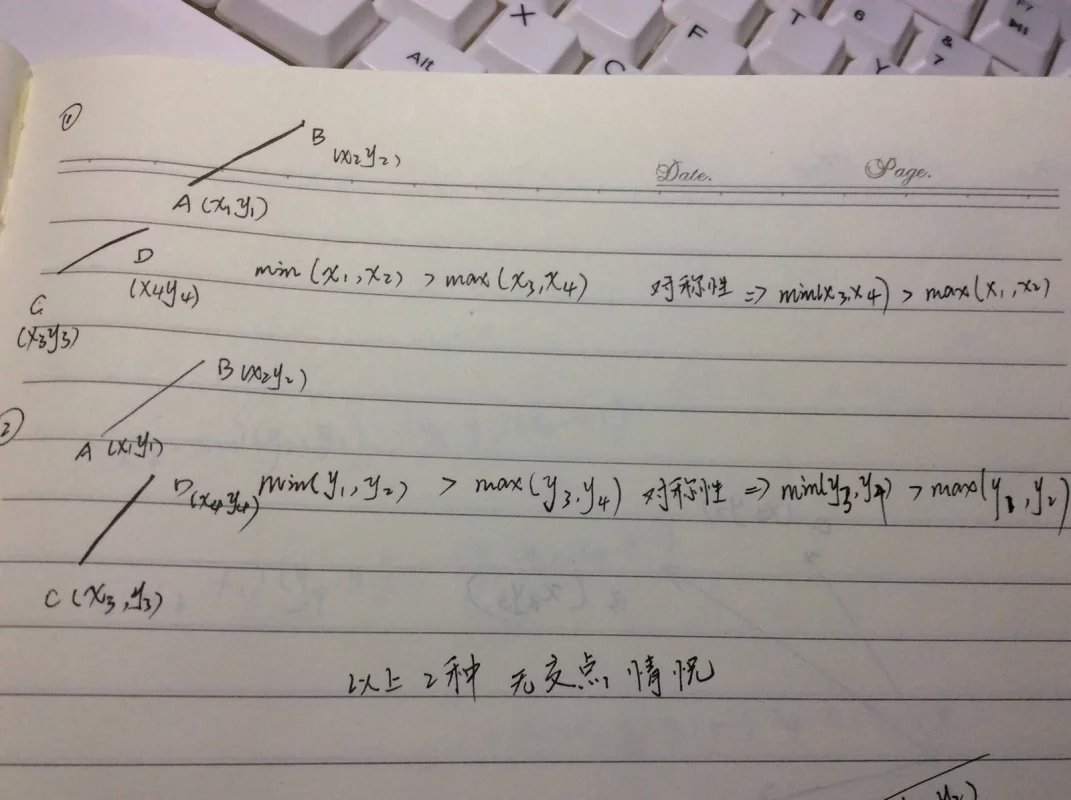 X F T 6 F7
Alt C Y & 7
①
B
(x₂y₂)
Date. Page.
A (x₁y₁)
D
(x₄y₄)
min (x₁,x₂) > max(x₃,x₄) 对称性 => min(x₃,x₄) > max(x₁,x₂)
C
(x₃y₃)
B (x₂y₂)
②
A (x₁y₁)
D (x₄y₄) min(y₁,y₂) > max(y₃,y₄) 对称性 => min(y₃,y₄) > max(y₁,y₂)
C (x₃,y₃)
以上2种 无交点 情况
y₂)